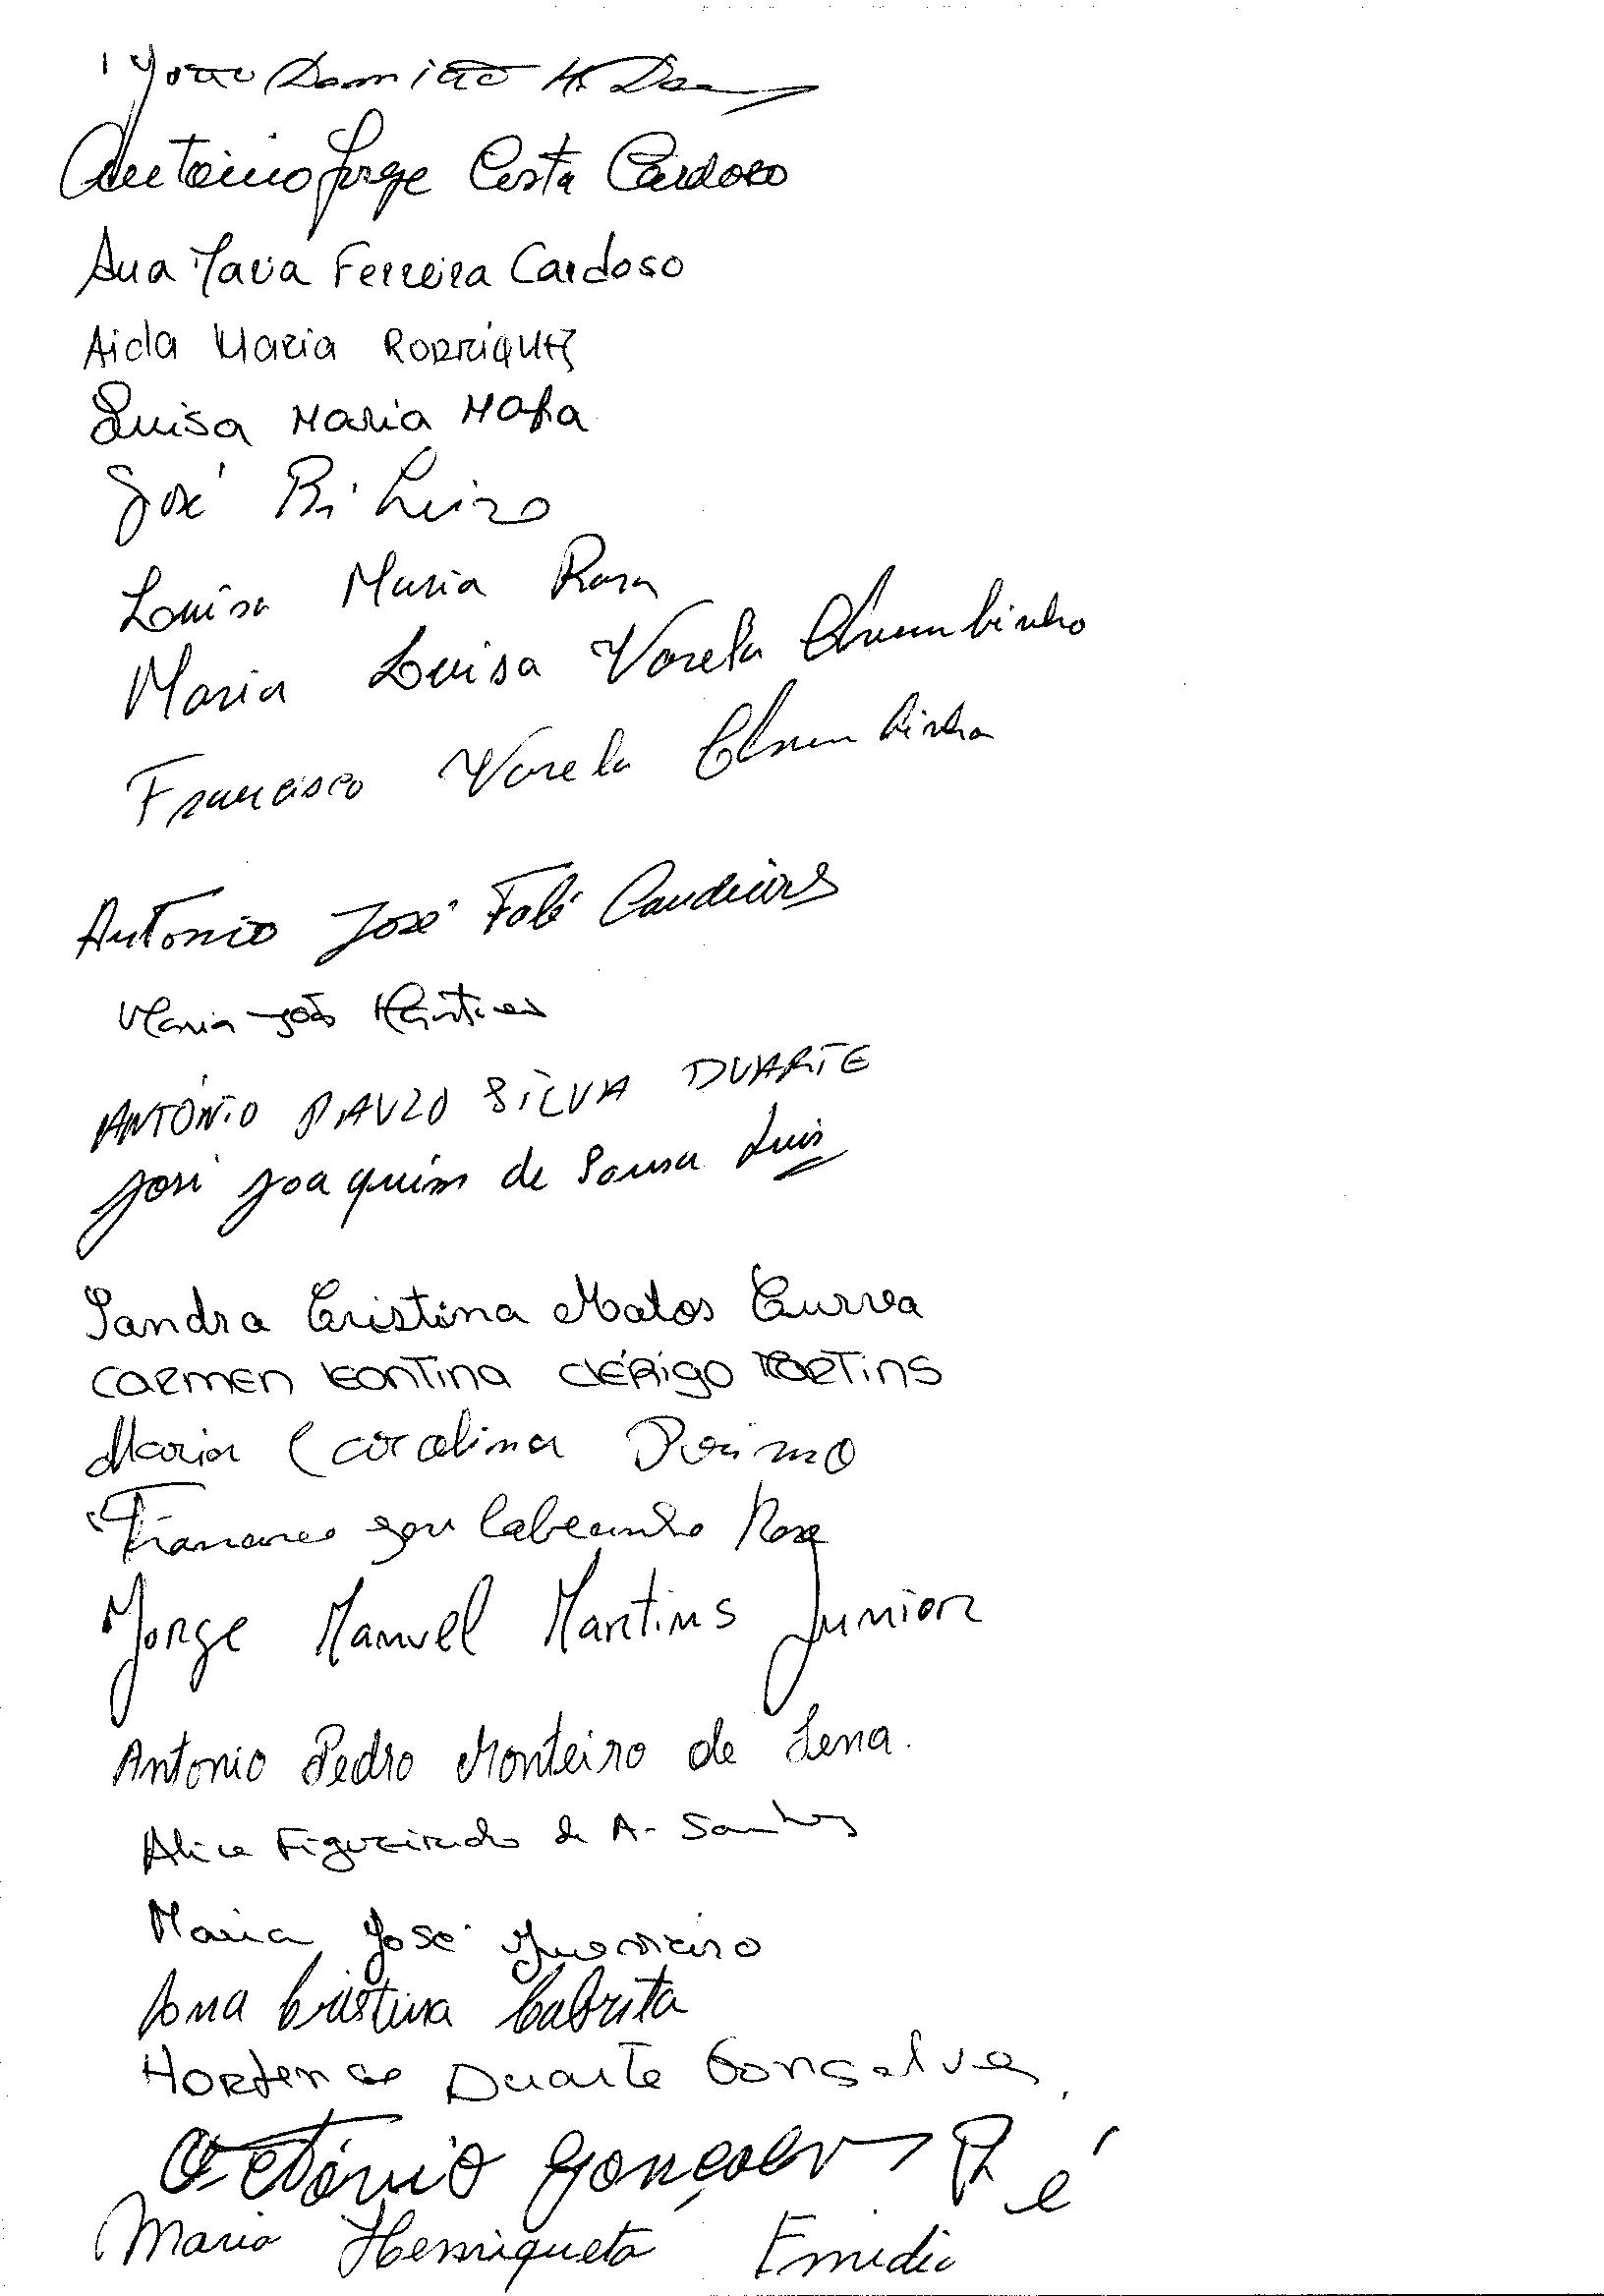 João Damião H.
António Jorge Costa Cardoso
Ana Maria Ferreira Cardoso
Aida Maria Rodrigues
Luisa Maria
José Ribeiro
Louisa Maria Rosa
Maria Luisa Varela Chumbinho
Francisco Varela Chumbinho
Antonio José Falé Candeias
Maria João Martins
ANTÓNIO PAULO SILVA DUARTE
José Joaquim de Sousa Luis
Sandra Cristina Matos Currea
Carmen Leontina Clérigo Martins
Maria Carolina Primo
Francisco José Cabecinho Rosa
Jorge Manuel Martins Junior
Antonio Pedro Monteiro de Sena.
Alice Figueiredo de A. Santos
Maria José Guerreiro
Ana Cristina Cabrita
Hortense Duarte Gonçalves
Octávio Gonçalves Ré
Maria Henriqueta Emidio